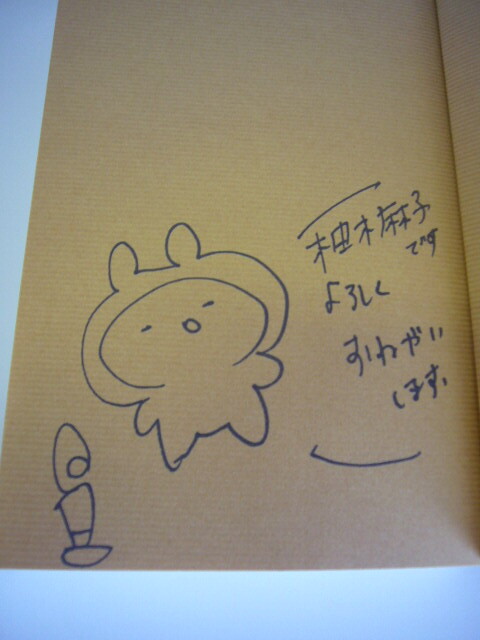 柚木麻子
です
よろしく
おねがい
します。